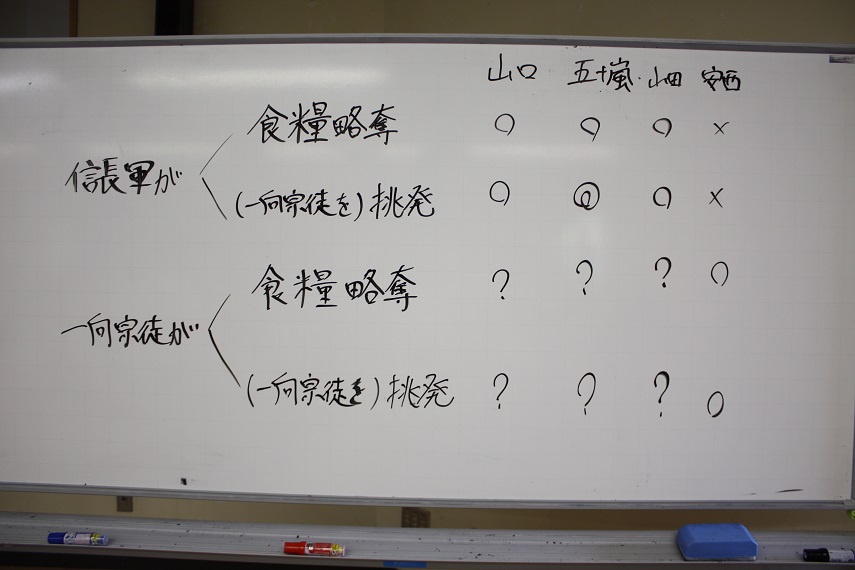 山口 五十嵐 山田 安西
食糧略奪 ○ ○ ○ ×
信長軍が
(一向宗徒を)挑発 ○ ◎ ○ ×
食糧略奪 ? ? ? ○
一向宗徒が
(一向宗徒を)挑発 ? ? ? ○